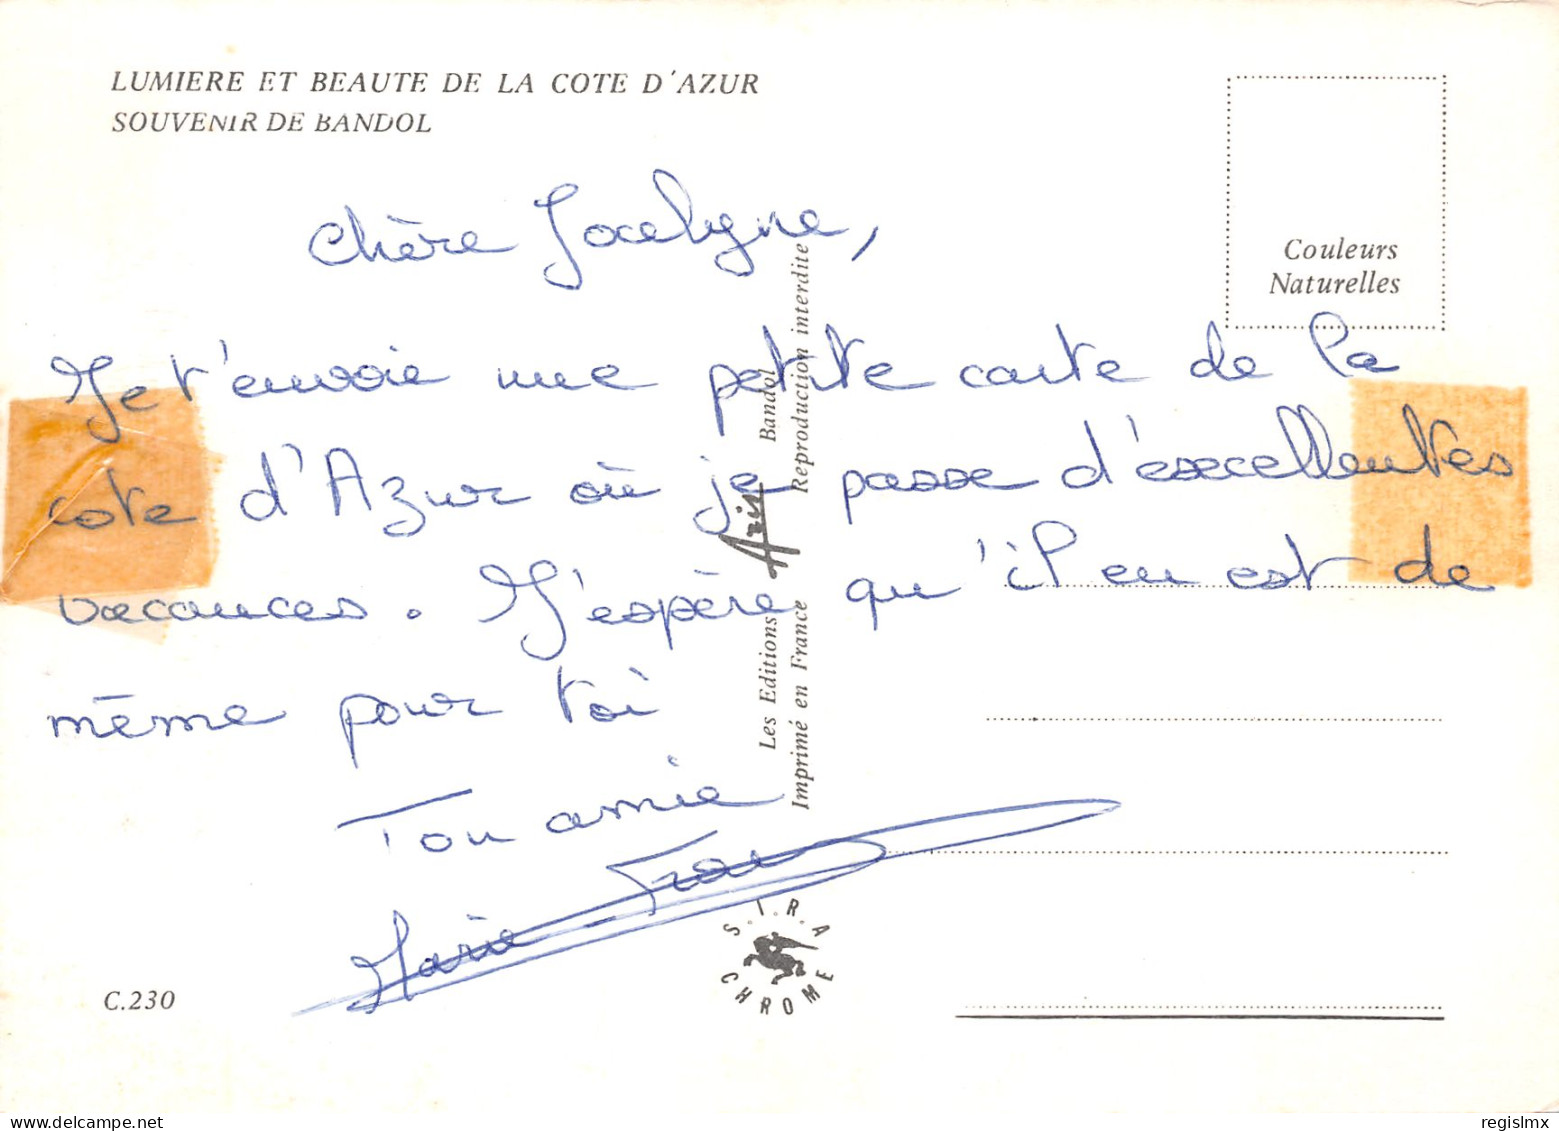 LUMIERE ET BEAUTE DE LA COTE D'AZUR
SOUVENIR DE BANDOL
Couleurs
Naturelles
Chère Jocelyne,
Je t'envoie une petite carte de la
cote d'Azur où je passe d'excellentes
vacances. J'espère qu'il en est de
même pour toi
Ton amie
Marie-
Les Editions Aris Bandol
Imprimé en France Reproduction interdite
S.I.R.A
CHROME
C.230
regislmx